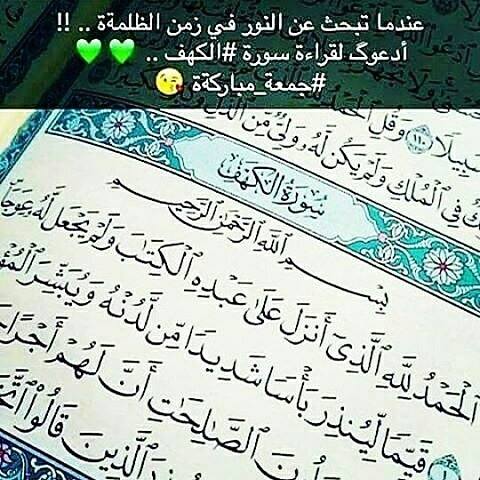 عندما تبحث عن النور في زمن الظلمةة .. !!
أدعوگ لقراءة سورة #الكهف .. 💚 💚
#جمعة_مباركةة 😘
سَبِيلًا ١١٠ وَقُلِ الْحَمْدُ
فِي الْمُلْكِ وَلَمْ يَكُن لَّهُ وَلِيٌّ مِّنَ الذُّلِّ
سُورَةُ الْكَهْفِ
بِسْمِ اللَّهِ الرَّحْمَٰنِ الرَّحِيمِ
الْحَمْدُ لِلَّهِ الَّذِي أَنزَلَ عَلَىٰ عَبْدِهِ الْكِتَٰبَ وَلَمْ يَجْعَل لَّهُ عِوَجَا
قَيِّمًا لِّيُنذِرَ بَأْسًا شَدِيدًا مِّن لَّدُنْهُ وَيُبَشِّرَ
الصَّٰلِحَٰتِ أَنَّ لَهُمْ أَجْرًا
الَّذِينَ قَالُوا